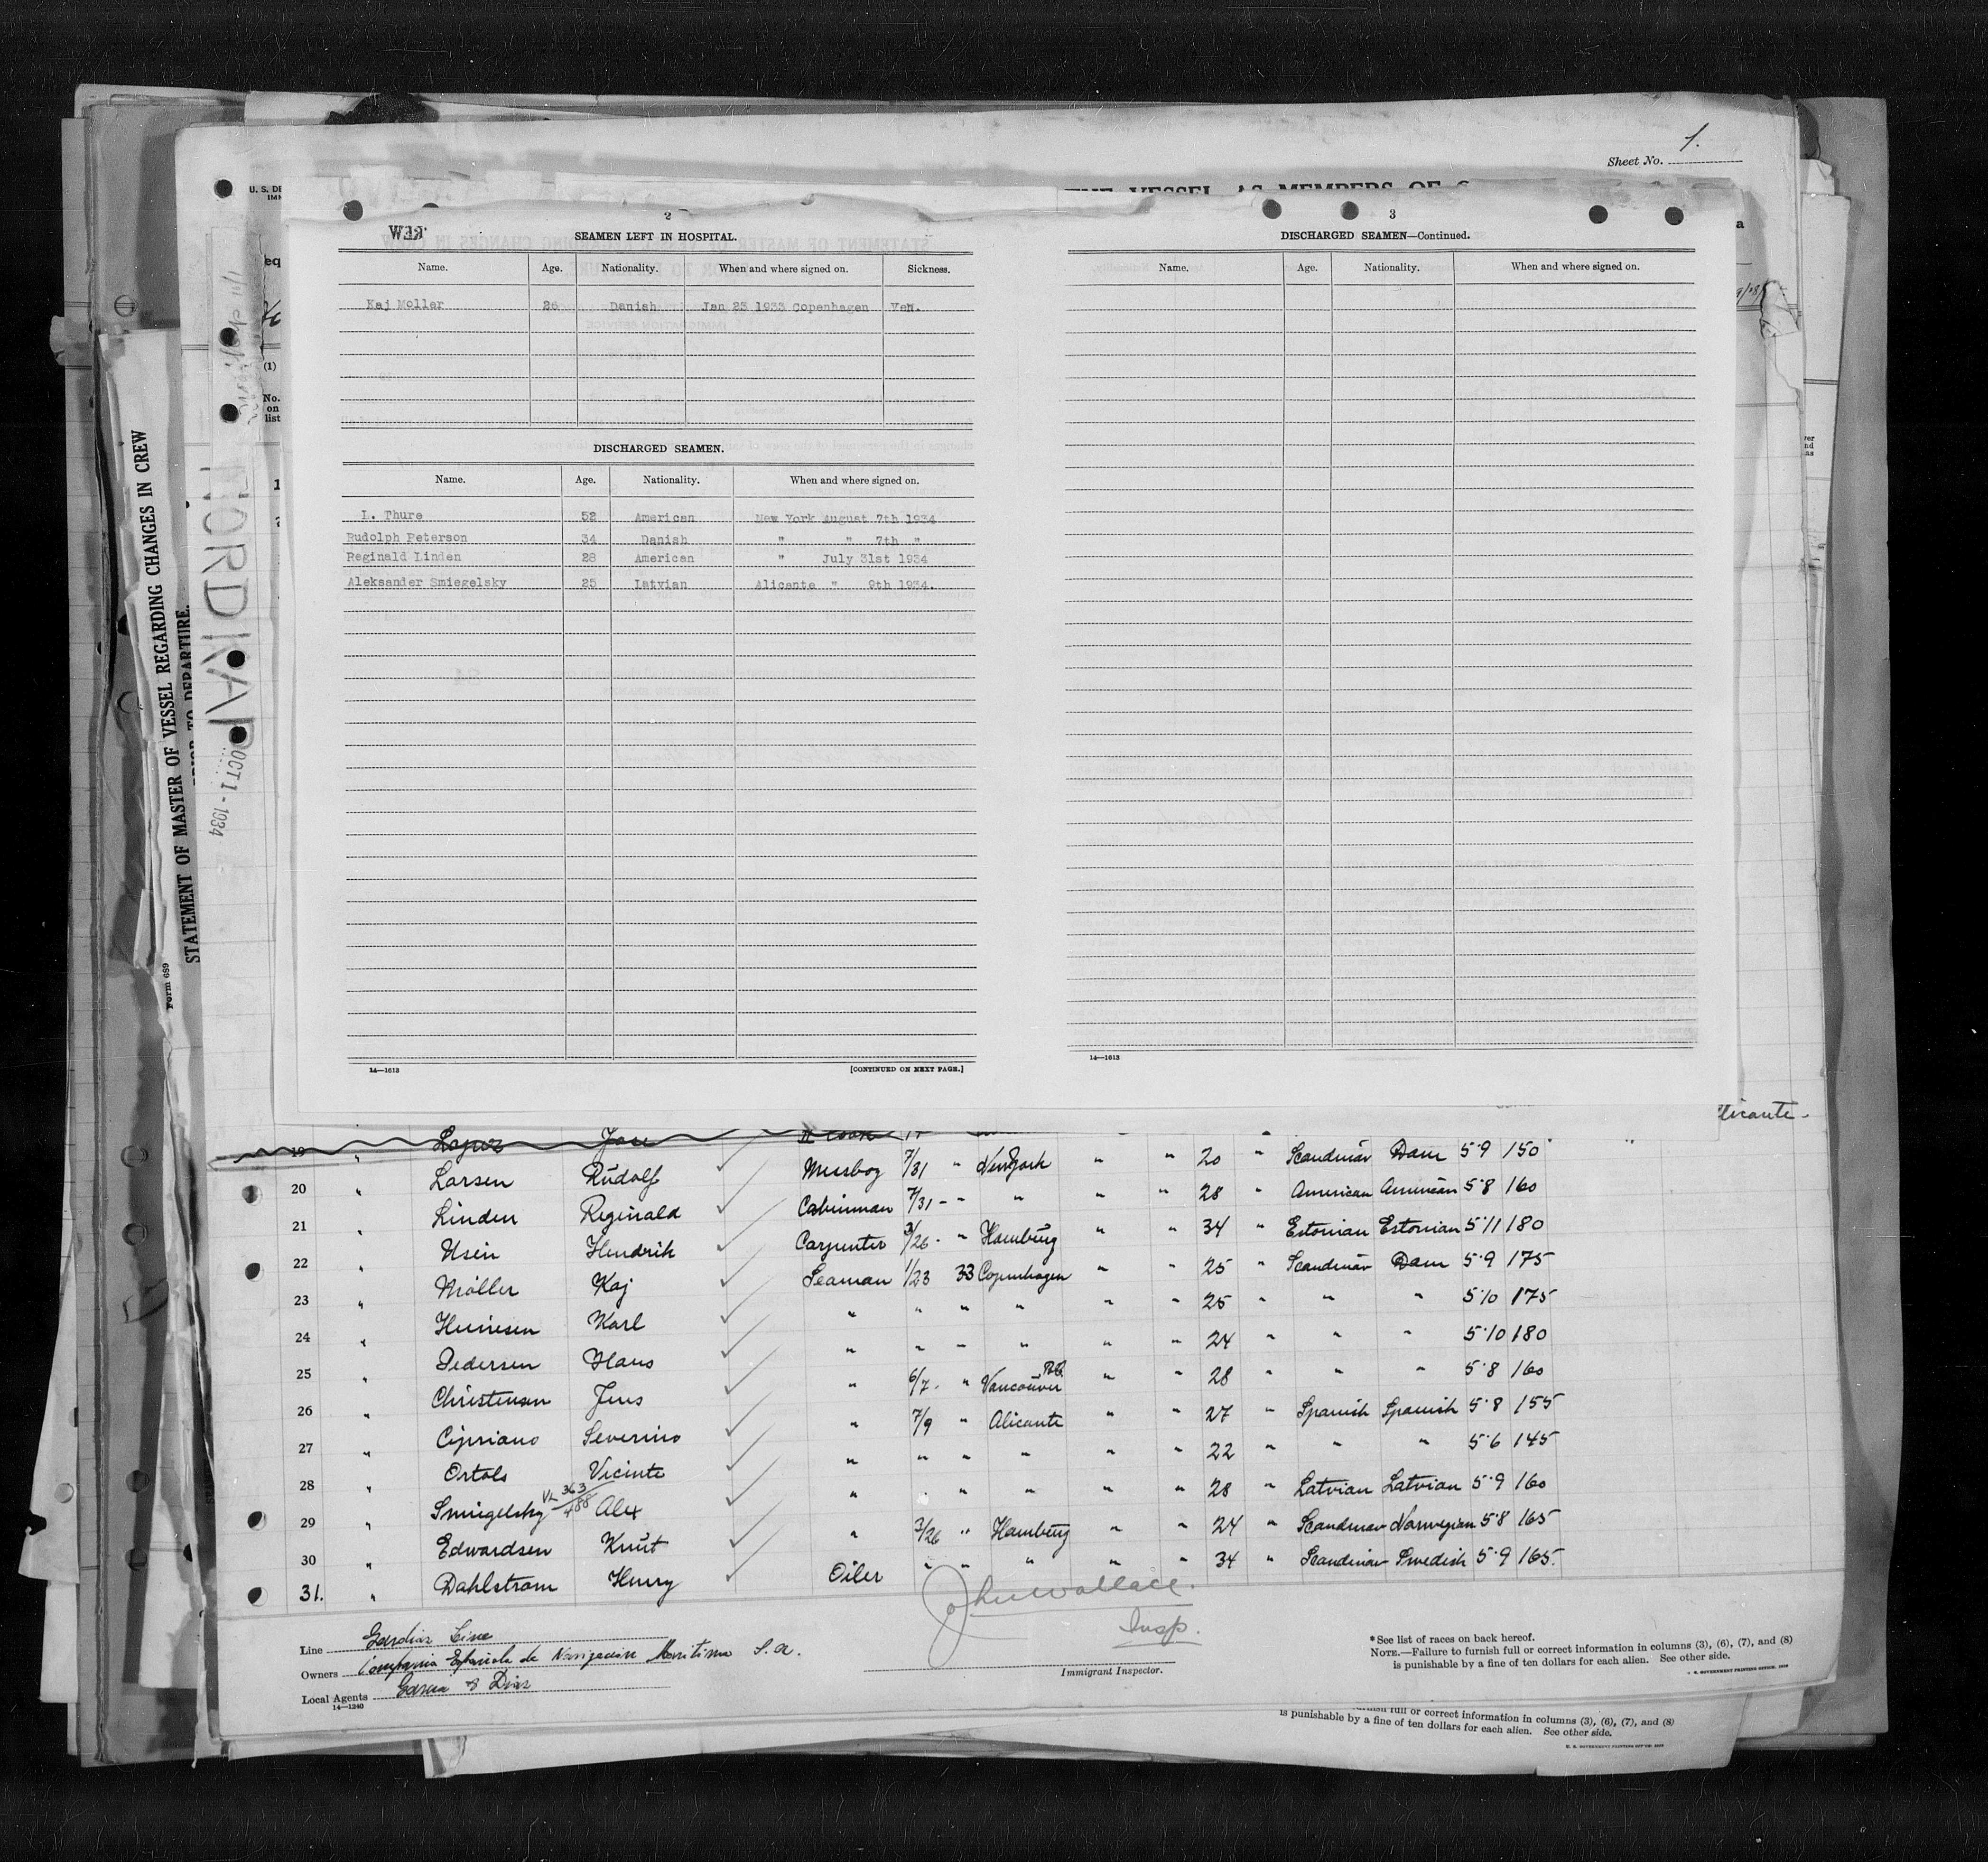 1.
Sheet No.
U. S. DE
THE VESSEL AS MEMBERS OF
2
SEAMEN LEFT IN HOSPITAL.
Name. Age. Nationality. When and where signed on. Sickness.
Kaj Moller 26 Danish Jan 23 1933 Copenhagen Ven.
DISCHARGED SEAMEN.
Name. Age. Nationality. When and where signed on.
I. Thure 52 American New York August 7th 1934
Rudolph Peterson 34 Danish " " 7th "
Reginald Linden 28 American " July 31st 1934
Aleksander Smiegelsky 25 Latvian Alicante " 9th 1934.
14—1613
[CONTINUED ON NEXT PAGE.]
3
DISCHARGED SEAMEN—Continued.
Name. Age. Nationality. When and where signed on.
14—1613
STATEMENT OF MASTER OF VESSEL REGARDING CHANGES IN CREW
PRIOR TO DEPARTURE.
Form 689
STATEMENT OF MASTER OF VESSEL REGARDING CHANGES IN CREW
NORDKAP
OCT 1 - 1934
(1)
No.
on
list
licante
19 " Lopez Jose
20 " Larsen Rudolf Messboy 7/31 " New York " " 20 " Scandinav Dane 5·9 150
21 " Linden Reginald Cabinman 7/31 - " " " " 28 " American American 5·8 160
22 " Usin Hendrik Carpenter 3/26 - " Hamburg " " 34 " Estonian Estonian 5·11 180
23 " Möller Kaj Seaman 1/23 33 Copenhagen " " 25 " Scandinav Dane 5·9 175
24 " Heinesen Karl " " " " " " 25 " " " 5·10 175
25 " Pedersen Hans " " " " " " 24 " " " 5·10 180
26 " Christensen Jens " 6/7 - " Vancouver B.C. " " 28 " " " 5·8 160
27 " Cipriano Severino " 7/9 " Alicante " " 27 " Spanish Spanish 5·8 155
28 " Ortols Vicinte " " " " " " 22 " " " 5·6 145
29 " Smigelsky VL 363/488 Alex " " " " " " 28 " Latvian Latvian 5·9 160
30 " Edwardsen Knut " 3/26 " Hamburg " " 24 " Scandinav Norwegian 5·8 165
31. " Dahlstrom Henry Oiler " " " " " 34 " Scandinav Swedish 5·9 165.
Line Gardiaz Line
Owners Compania Española de Navigacion Maritima S. A.
Local Agents Garcia & Diaz
14—1240
John Wallace.
Insp.
Immigrant Inspector.
*See list of races on back hereof.
NOTE.—Failure to furnish full or correct information in columns (3), (6), (7), and (8)
is punishable by a fine of ten dollars for each alien. See other side.
U. S. GOVERNMENT PRINTING OFFICE
full or correct information in columns (3), (6), (7), and (8)
is punishable by a fine of ten dollars for each alien. See other side.
U. S. GOVERNMENT PRINTING OFFICE